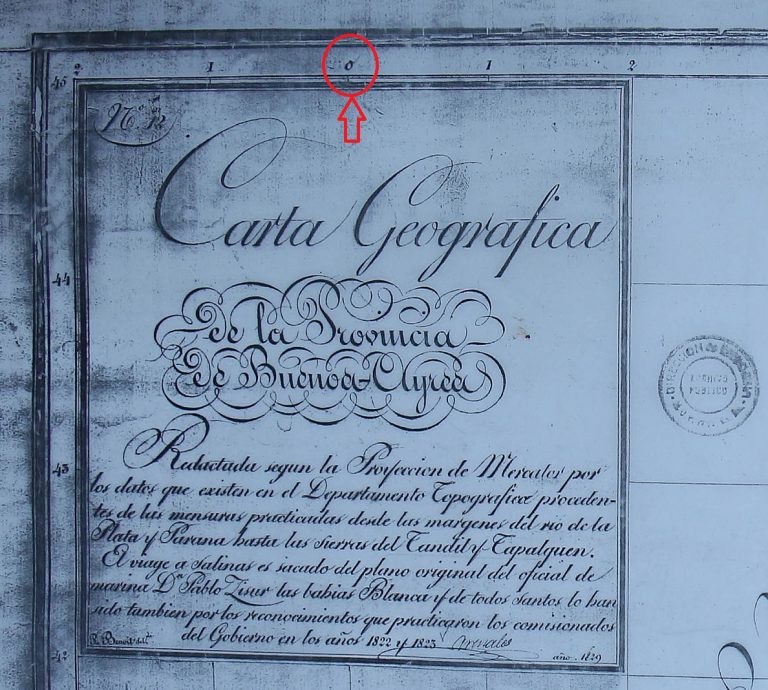 2 1 0 1 2
45
Nº 12
Carta Geografica
44
de la Provincia
de Buenos-Ayres
43
Redactada segun la Proyeccion de Mercator por
los datos que existen en el Departamento Topografico proceden-
tes de las mensuras practicadas desde las margenes del rio de la
Plata y Parana hasta las sierras del Tandil y Tapalquen.
El viage a salinas es sacado del plano original del oficial de
marina Dn Pablo Zisur las bahias Blanca y de todos santos lo han
sido tambien por los reconocimientos que practicaron los comisionados
del Gobierno en los años 1822 y 1823
Arevalo
42
año 1829